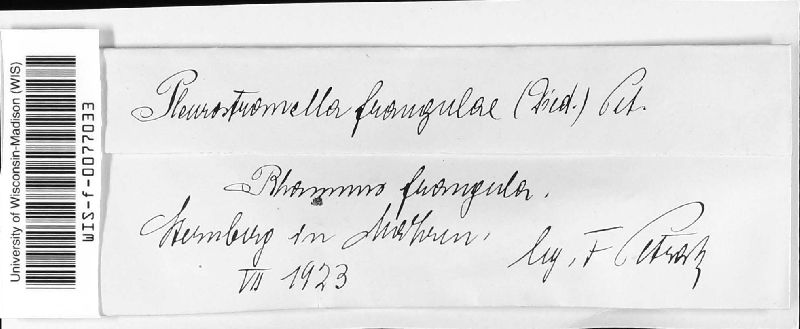 University of Wisconsin-Madison (WIS)
WIS-f-0077033
Pleurostromella frangulae (Died.) Pet.
Rhamnus frangula.
Sternberg in Mähren.
leg. F Petrak
VII 1923